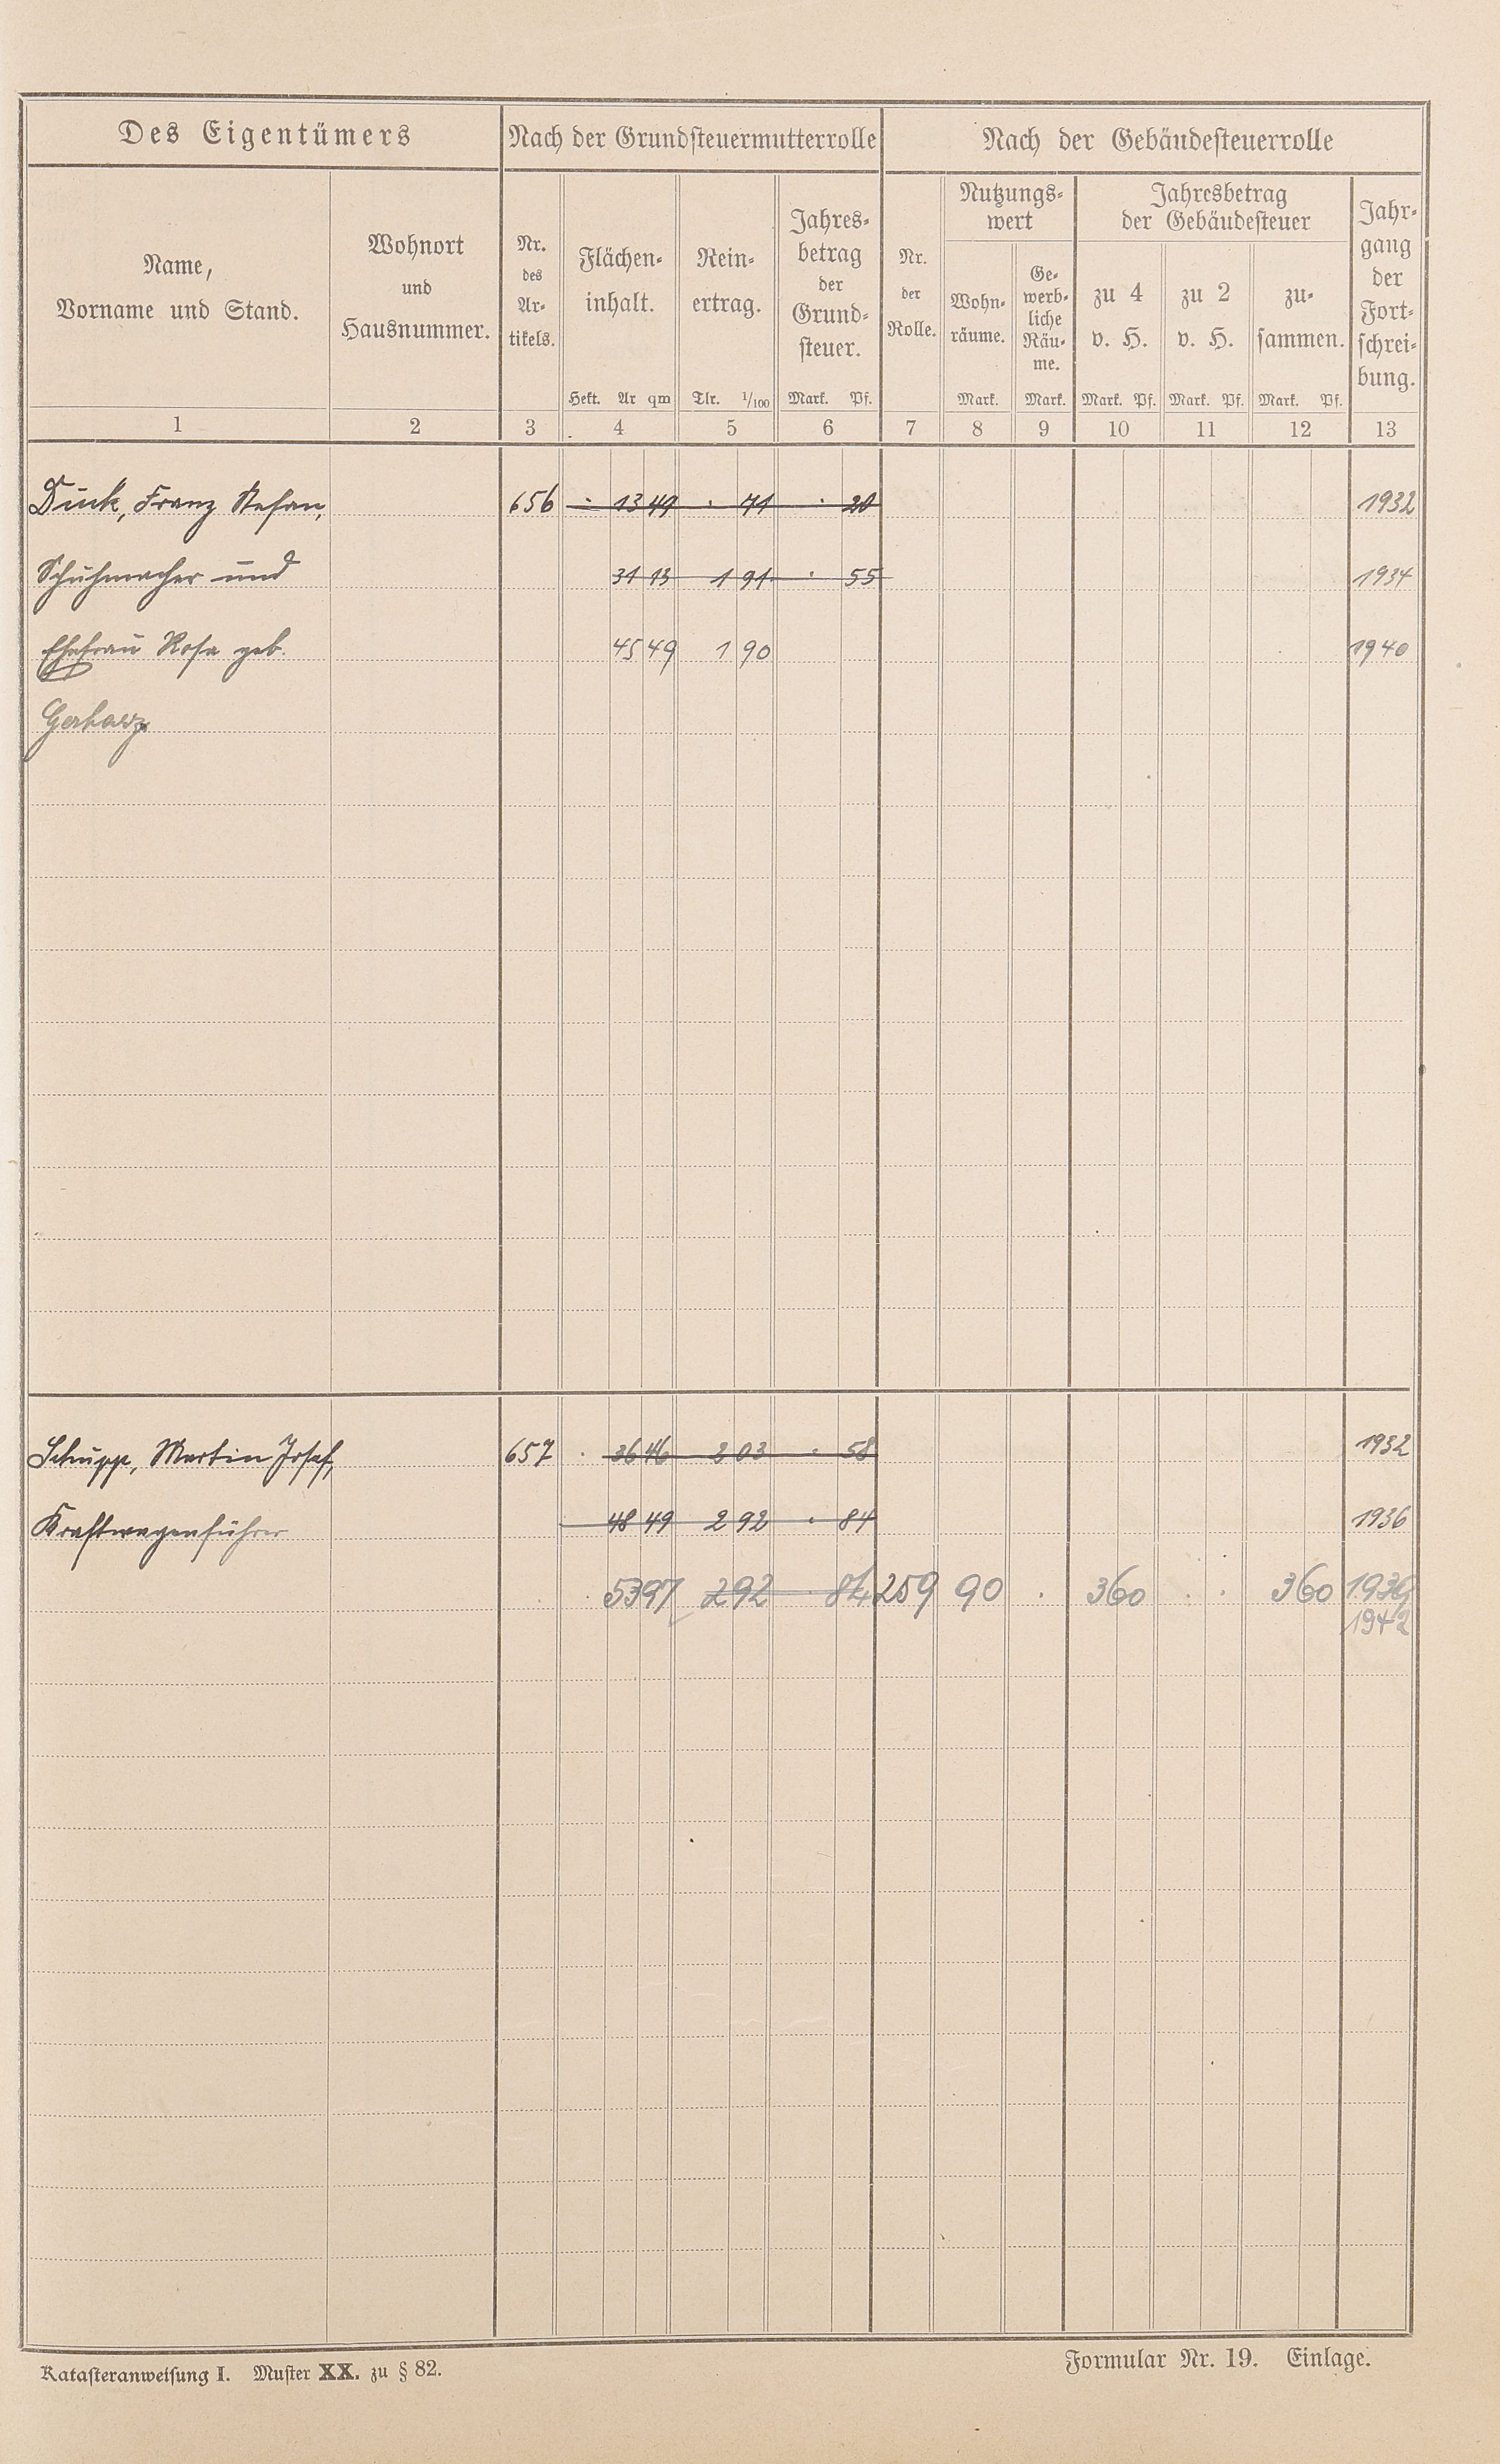 Des Eigentümers
Nach der Grundsteuermutterrolle
Nach der Gebäudesteuerrolle
Name,
Vorname und Stand.
Wohnort
und
Hausnummer.
Nr.
des
Ar-
tikels.
Flächen-
inhalt.
Hekt. Ar qm
Rein-
ertrag.
Tlr. 1/100
Jahres-
betrag
der
Grund-
steuer.
Mark. Pf.
Nr.
der
Rolle.
Nutzungs-
wert
Wohn-
räume.
Mark.
Ge-
werb-
liche
Räu-
me.
Mark.
Jahresbetrag
der Gebäudesteuer
zu 4
v. H.
Mark. Pf.
zu 2
v. H.
Mark. Pf.
zu-
sammen.
Mark. Pf.
Jahr-
gang
der
Fort-
schrei-
bung.
1 2 3 4 5 6 7 8 9 10 11 12 13
Franz Stefan, 656 · 13 49 · 71 · 20 1932
Schuhmacher und 31 13 1 91 · 55 1934
Ehefrau Rosa geb. 45 49 1 90 1940
Schupp, Martin Josef, 657 · 36 46 2 03 · 58 1932
Kraftwagenführer 48 49 2 92 · 84 1936
· 53 97 2 92 · 84 259 90 · 3 60 · · 3 60
1942
Katasteranweisung I. Muster XX. zu § 82.
Formular Nr. 19. Einlage.